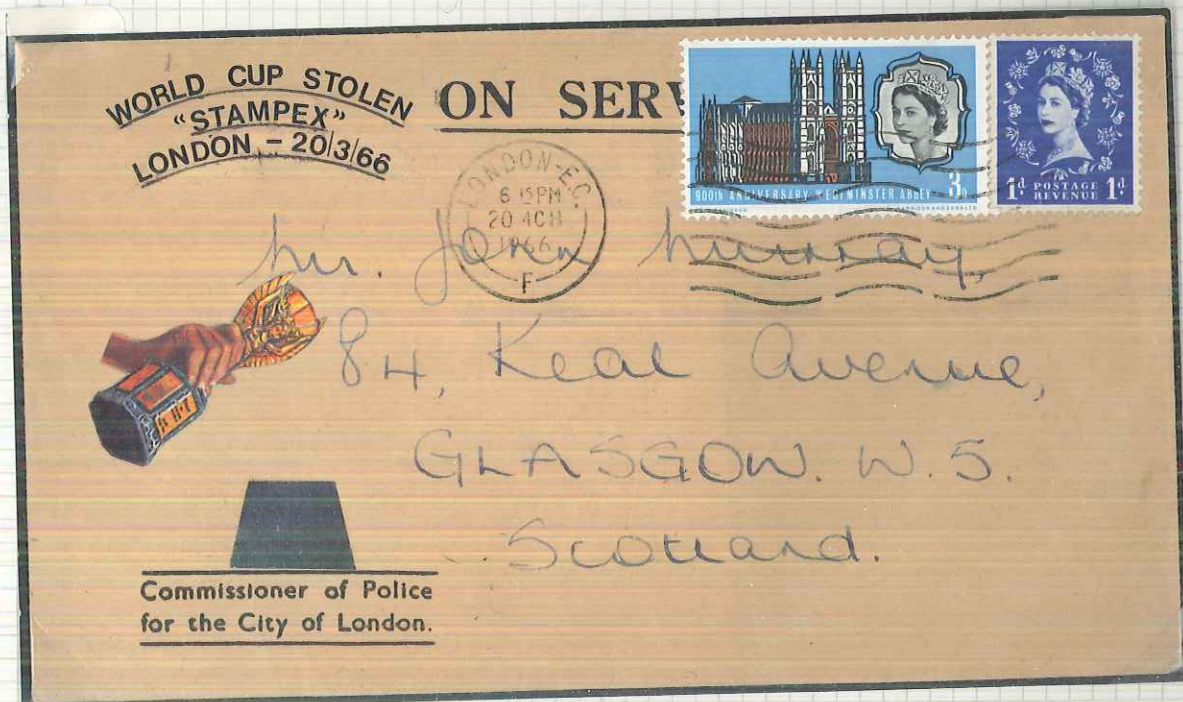 WORLD CUP STOLEN
"STAMPEX"
LONDON - 20/3/66
ON SERV
900th ANNIVERSARY WESTMINSTER ABBEY 3D
1d POSTAGE REVENUE 1d
LONDON-E.C.
6 15PM
20 MCH
1966
F
Mr. John Murray,
84, Keal Avenue,
GLASGOW. W. 5.
Scotland.
Commissioner of Police
for the City of London.